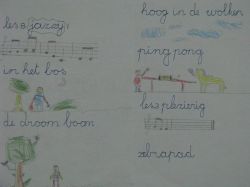 les 8 jazzy
in het bos
de droom boom
hoog in de wolken
ping pong
les 2 plezierig
zebrapad